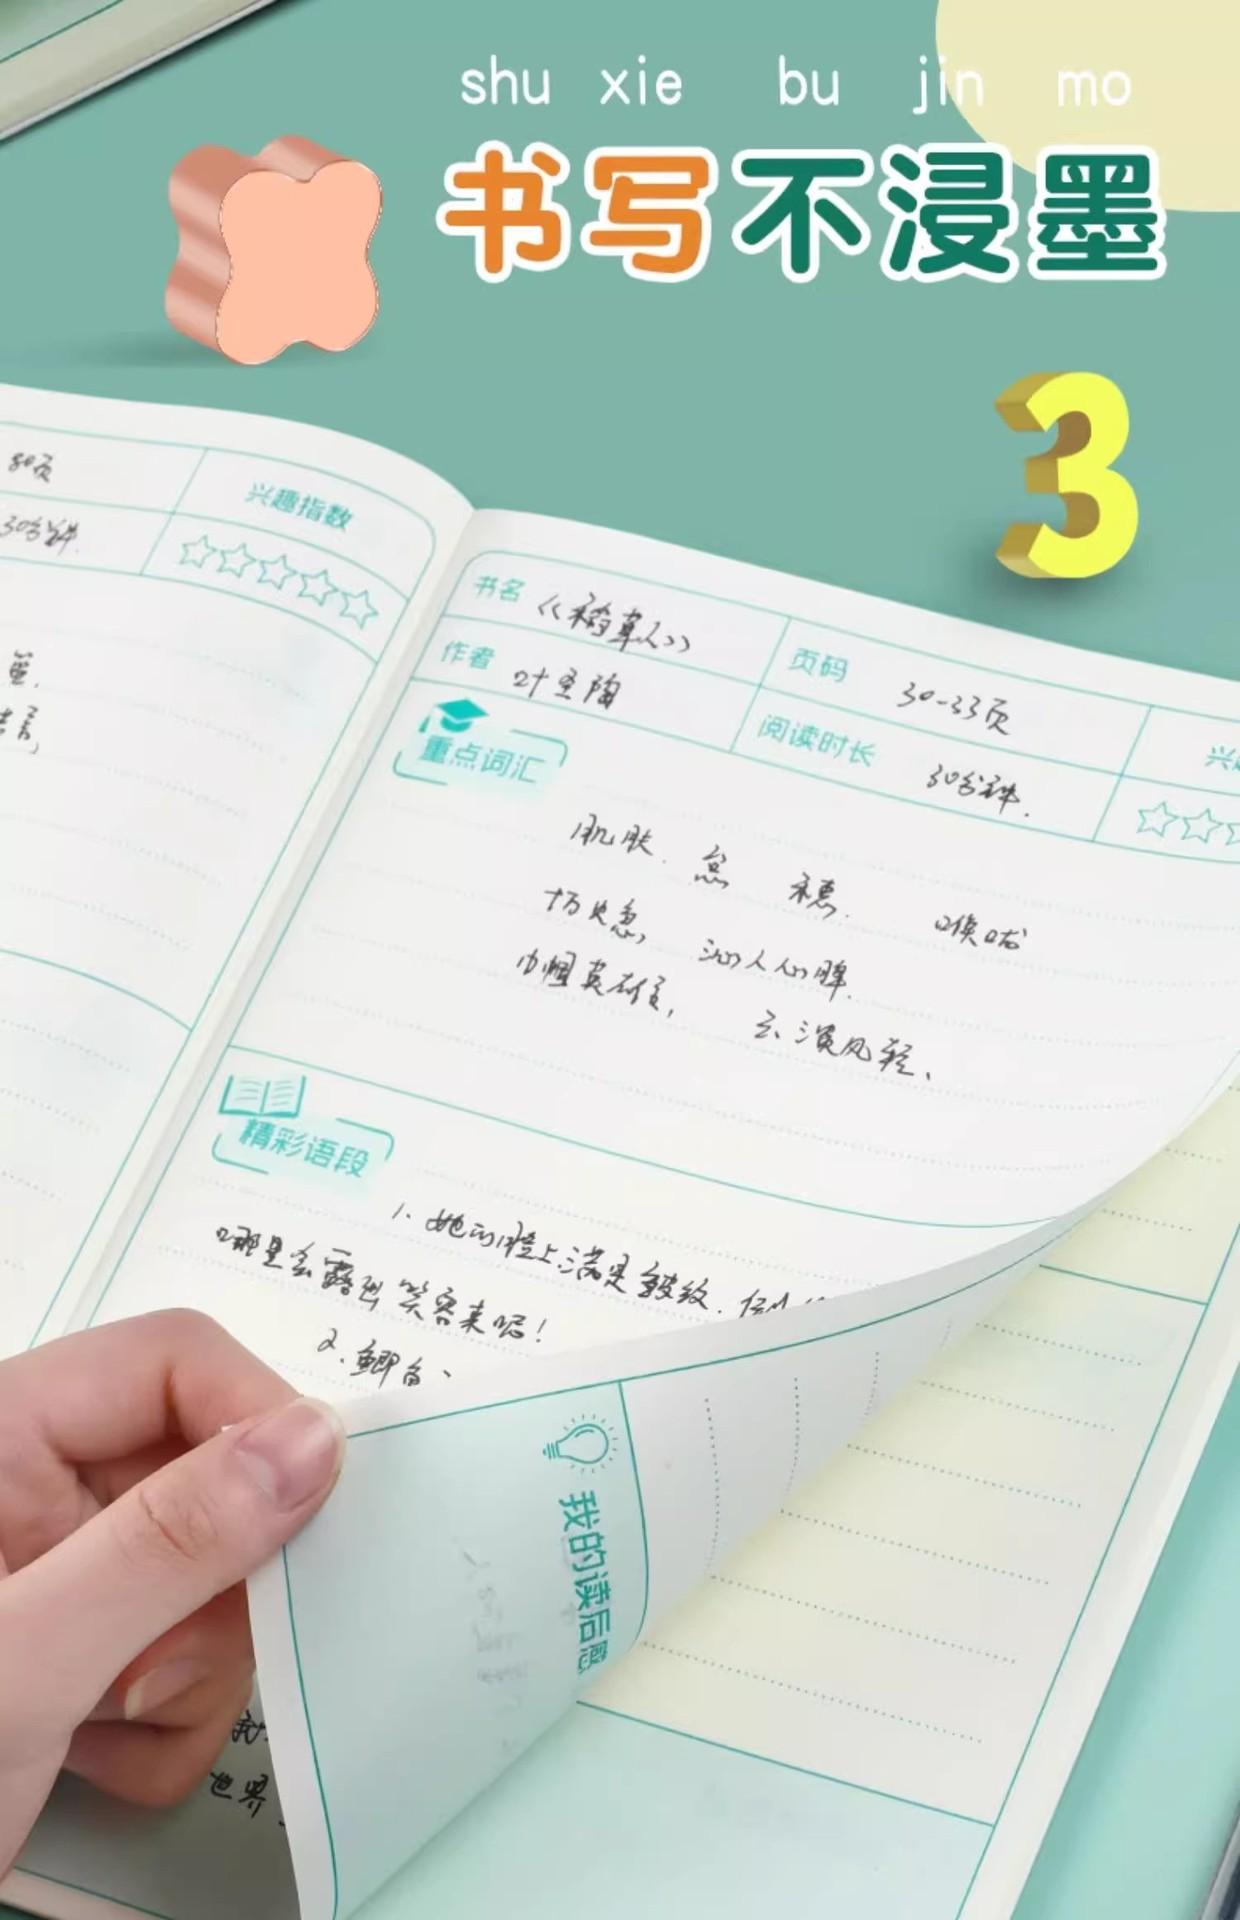 shu xie bu jin mo
书写不浸墨
3
80页
兴趣指数
30分钟.
书名 《稻草人》
页码 30-33页
作者 叶圣陶
阅读时长 30分钟.
重点词汇
肌肤. 怠 穗. 唤咙
十万火急, 沁人心脾.
巾帼英雄, 云淡风轻、
精彩语段
1. 她的脸上满是皱纹.
哪里会露出笑容来呢!
2. 鲫鱼、
我的读后感
世界